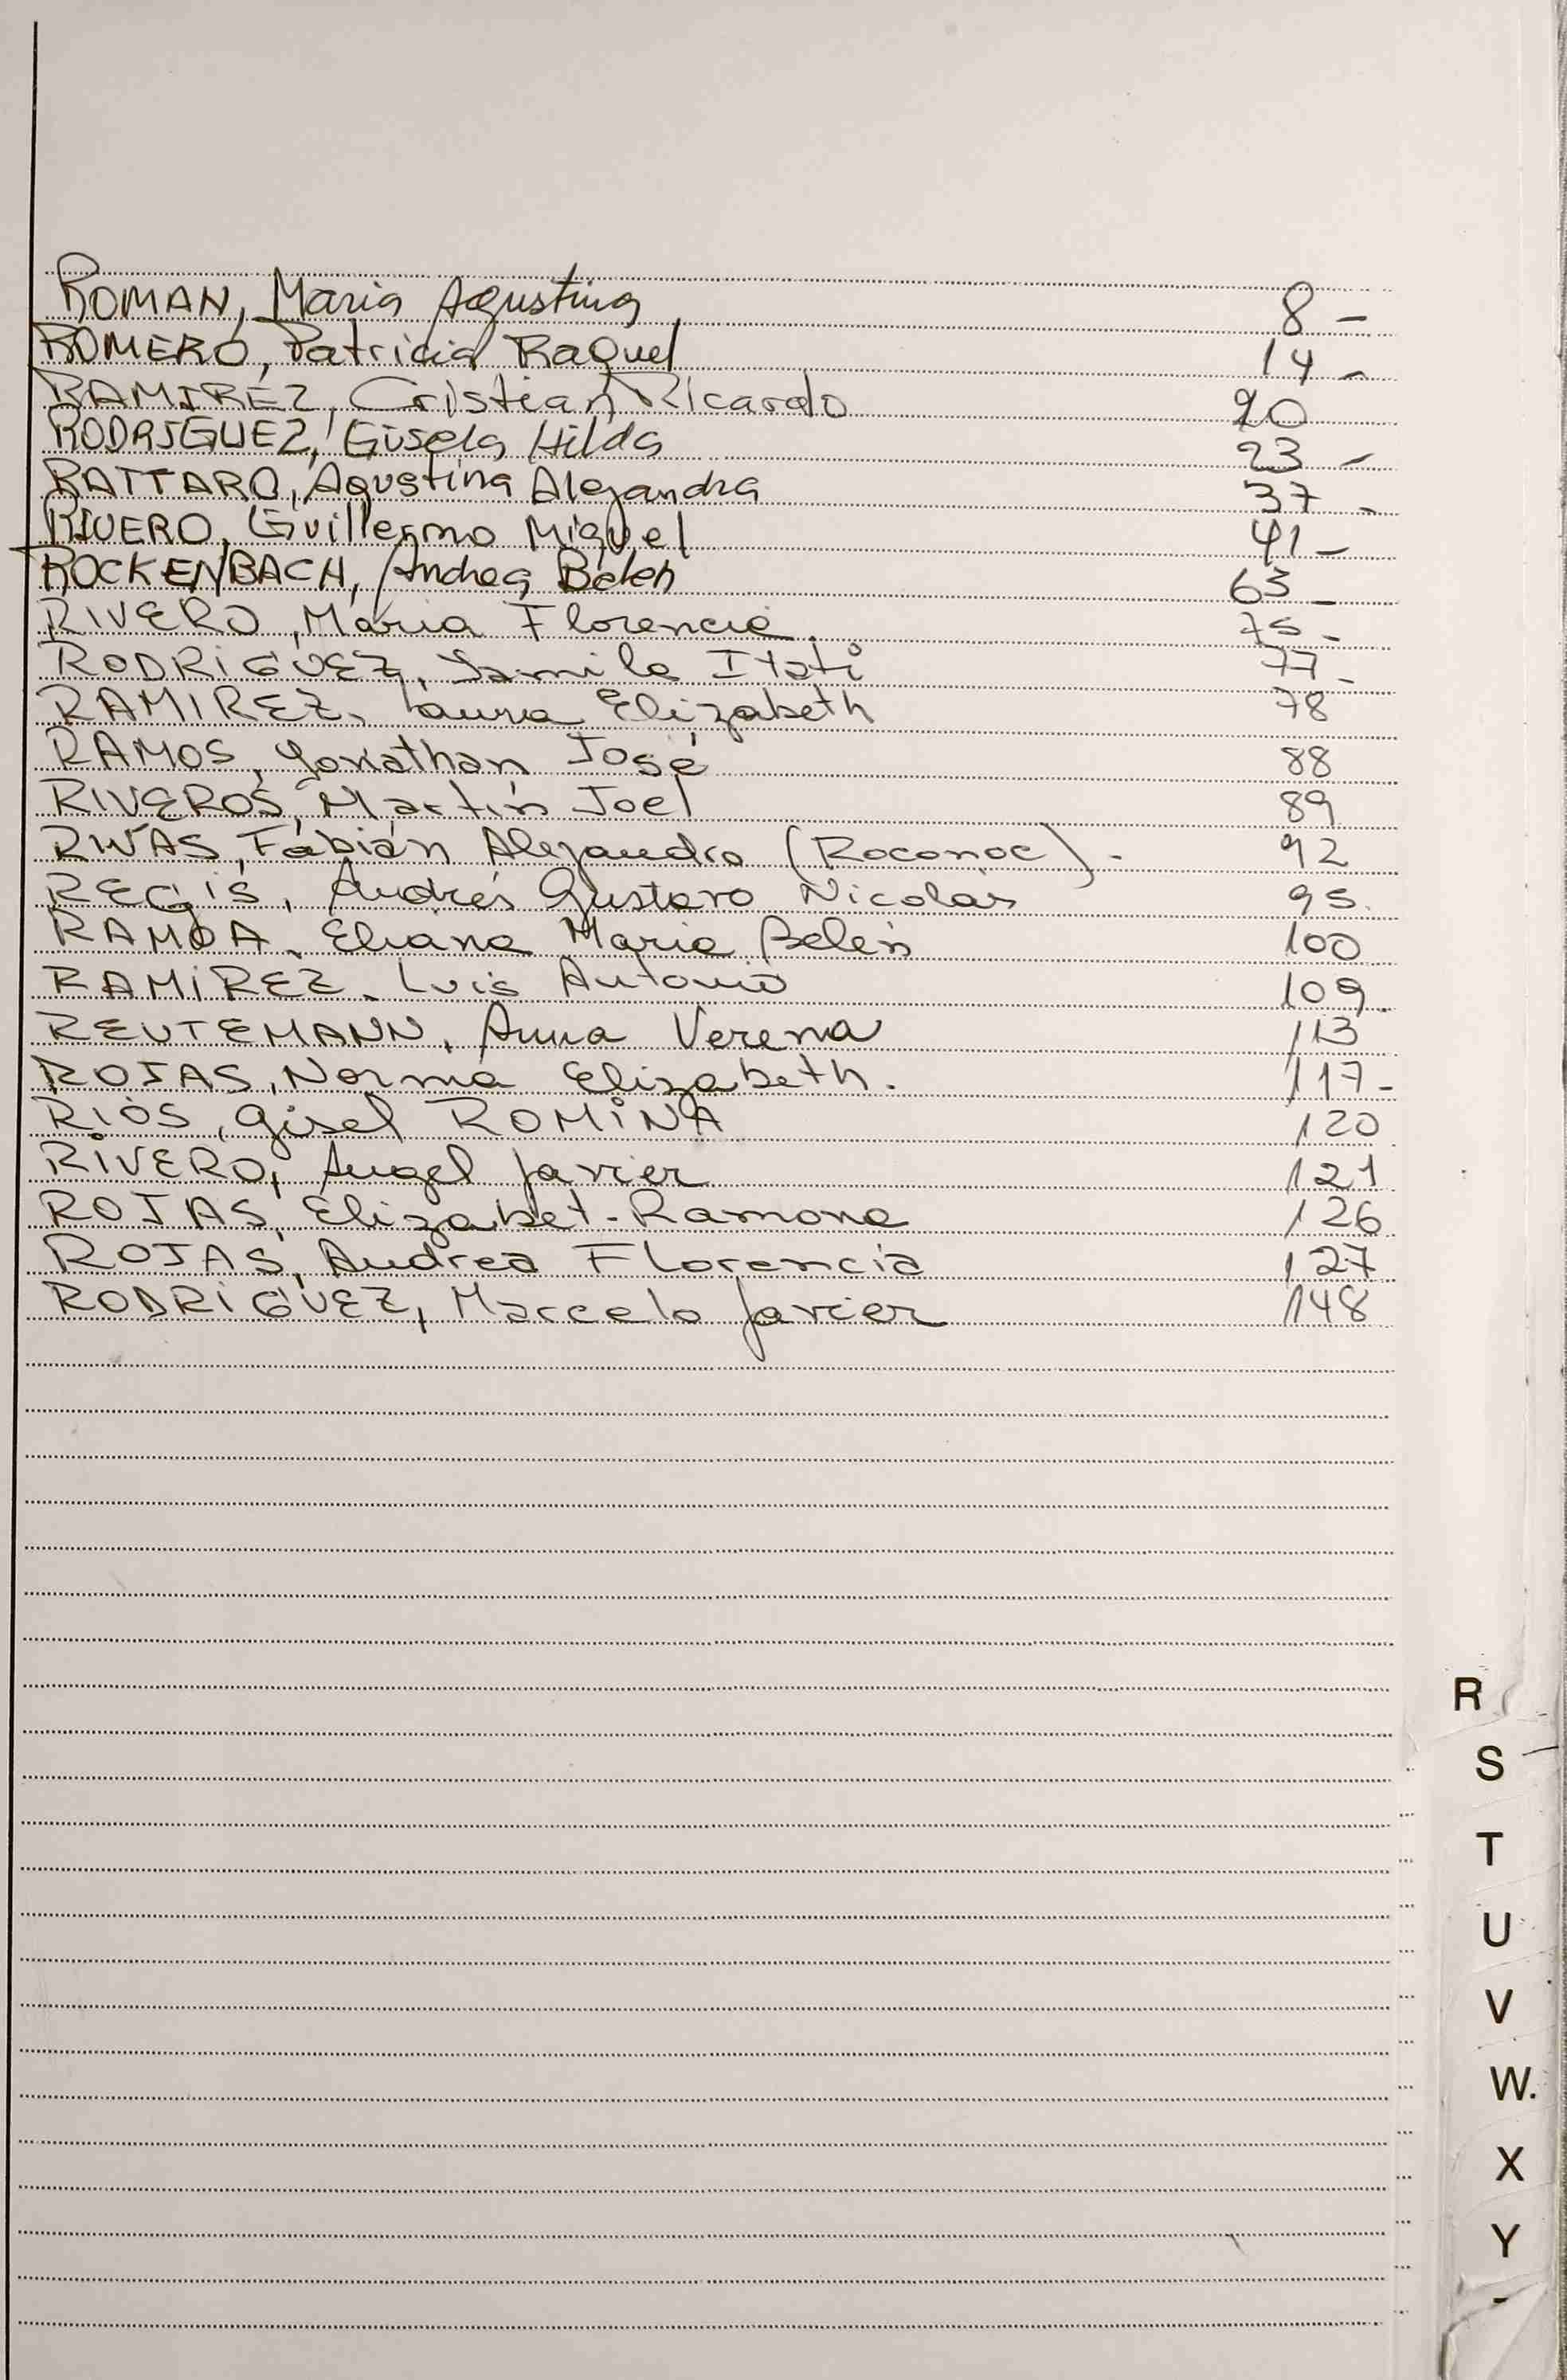 ROMAN, Maria Agustina 8 -
ROMERO, Patricia Raquel 14 -
RAMIREZ, Cristian Ricardo 20
RODRIGUEZ, Gisela Hilda 23 -
RATTARO, Agustina Alejandra 37 -
RIVERO, Guillermo Miguel 41 -
ROCKENBACH, Andrea Belen 63 -
RIVERO, Maria Florencia. 75 -
RODRIGUEZ, Yamila Itatí 77 -
RAMIREZ, Laura Elizabeth 78
RAMOS, Jonathan José 88
RIVEROS, Martín Joel 89
RIVAS, Fabián Alejandro (Roconoc). 92
REGIS, Andrés Gustavo Nicolás 95.
RAMOA, Eliana Maria Belén 100
RAMIREZ, Luis Antonio 109.
REUTEMANN, Anna Verena 113
ROJAS, Norma Elizabeth. 117 -
RIOS, Gisel ROMINA 120
RIVERO, Angel Javier 121
ROJAS, Elizabet Ramona 126
ROJAS, Andrea Florencia 127
RODRIGUEZ, Marcelo Javier 148
R
S
T
U
V
W.
X
Y